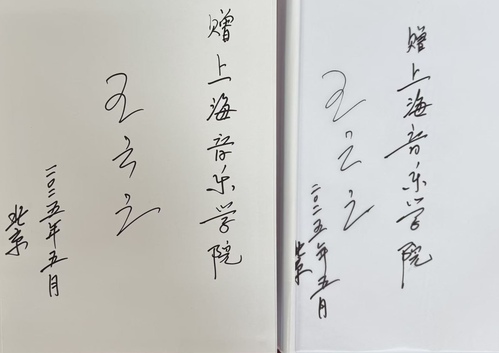 赠上海音乐学院
二〇二五年五月
北京
赠上海音乐学院
二〇二五年五月
北京